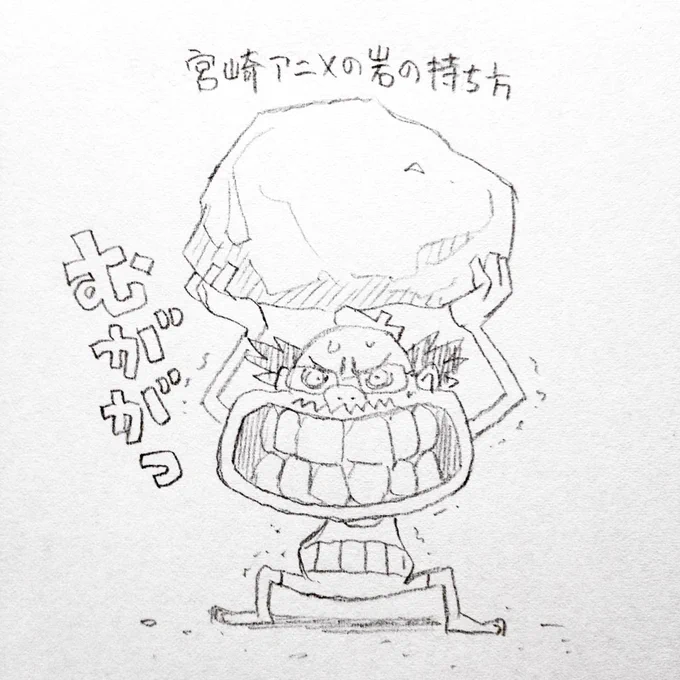 宮崎アニメの岩の持ち方
むががっ